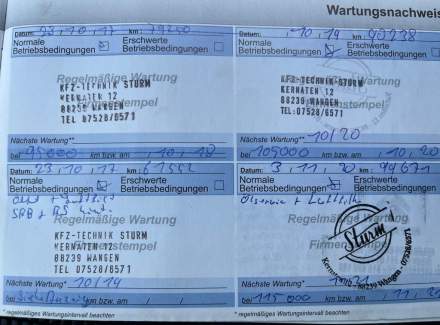 Wartungsnachweis
Datum: km:
Normale Betriebsbedingungen
Erschwerte Betriebsbedingungen
Regelmäßige Wartung
KFZ-TECHNIK STURM
KERNATEN 12
88239 WANGEN
TEL 07528/6571
Firmenstempel
Nächste Wartung**
bei 95000 km bzw. am 10/18
Datum: 10/19 km: 90238
Normale Betriebsbedingungen
Erschwerte Betriebsbedingungen
Regelmäßige Wartung
KFZ-TECHNIK STURM
KERNATEN 12
88239 WANGEN
TEL.:07528/6571
Firmenstempel
Nächste Wartung** 10/20
bei 105000 km bzw. am 10, 20
Datum: 23, 10, 17 km:
Normale Betriebsbedingungen
Erschwerte Betriebsbedingungen
Regelmäßige Wartung
KFZ-TECHNIK STURM
KERNATEN 12
88239 WANGEN
TEL 07528/6571
Firmenstempel
Nächste Wartung* 10/19
bei km bzw. am / /
* regelmäßiges Wartungsintervall beachten
Datum: 3, 11, 20 km: 99671
Normale Betriebsbedingungen
Erschwerte Betriebsbedingungen
Ölservice +
Regelmäßige Wartung
Sturm
88239 Wangen · 07528/6571
Nächste Wartung*
bei 115000 km bzw. am
* regelmäßiges Wartungsintervall beachten